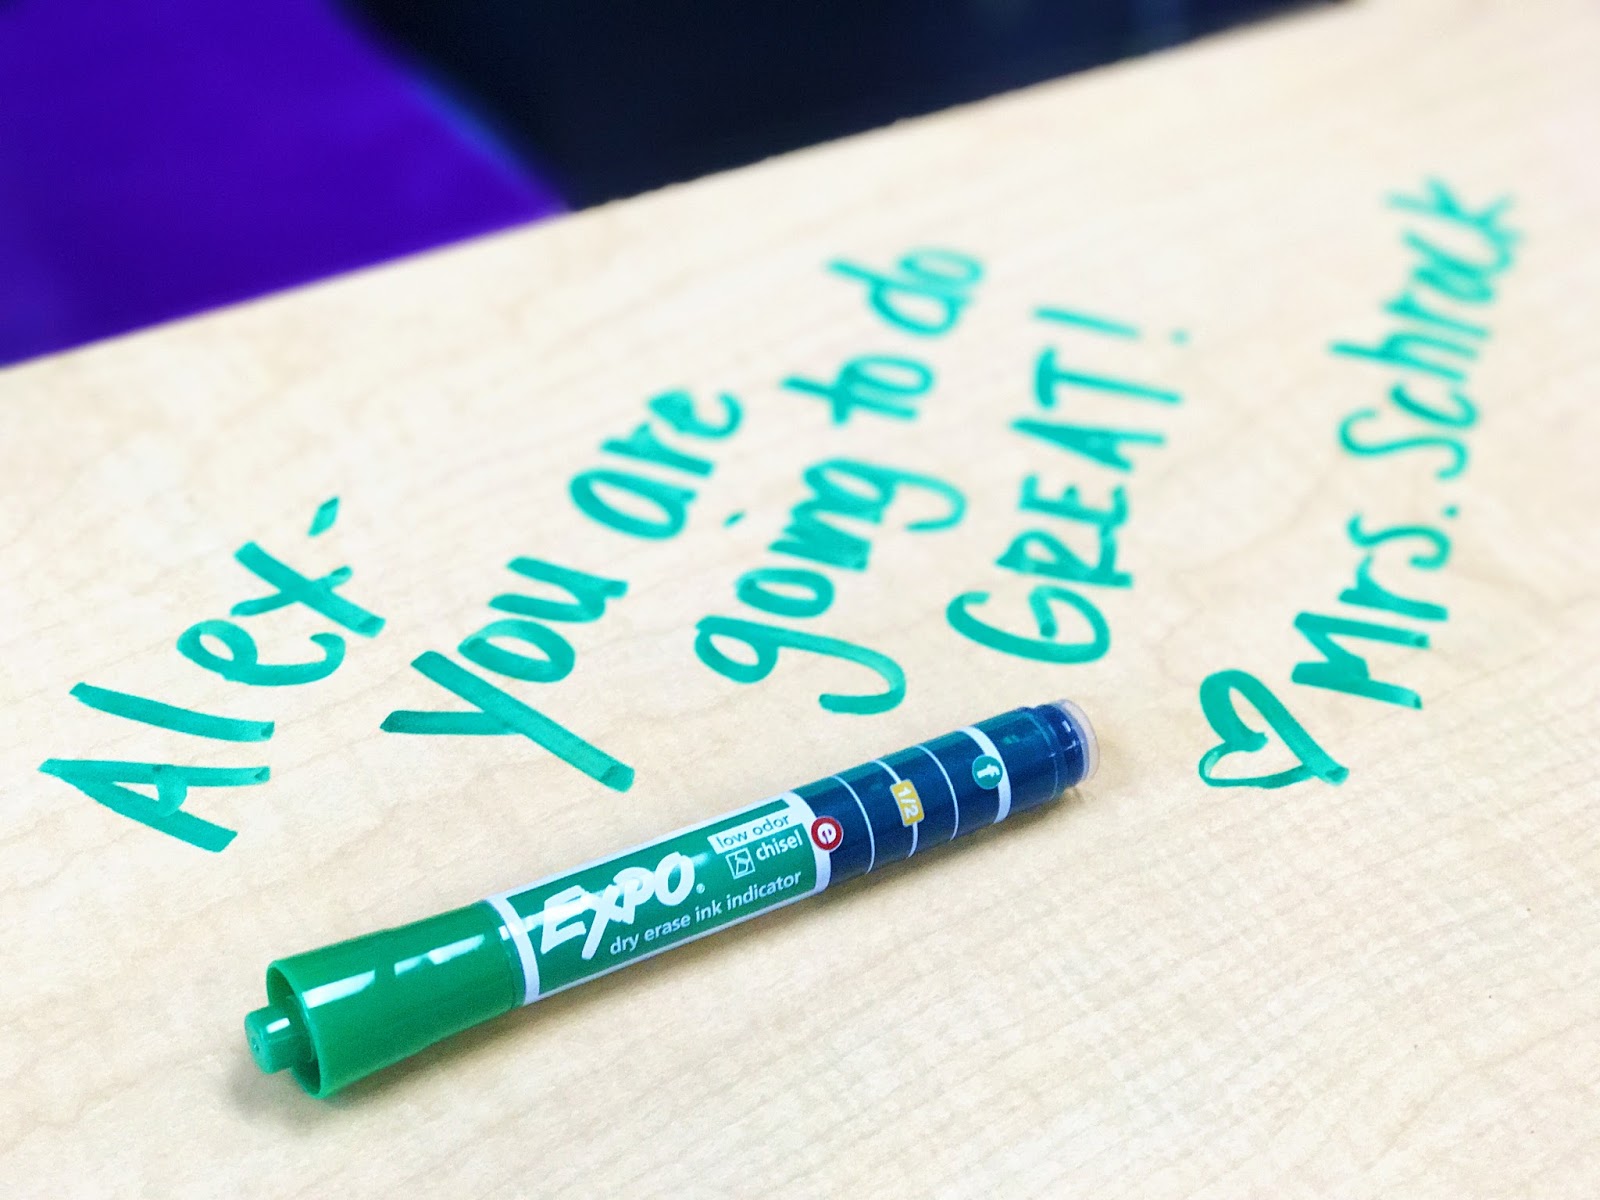 Alex-
You are
going to do
GREAT!
♡ Mrs. Schrock
EXPO®
low odor
chisel
dry erase ink indicator
e
1/2
f